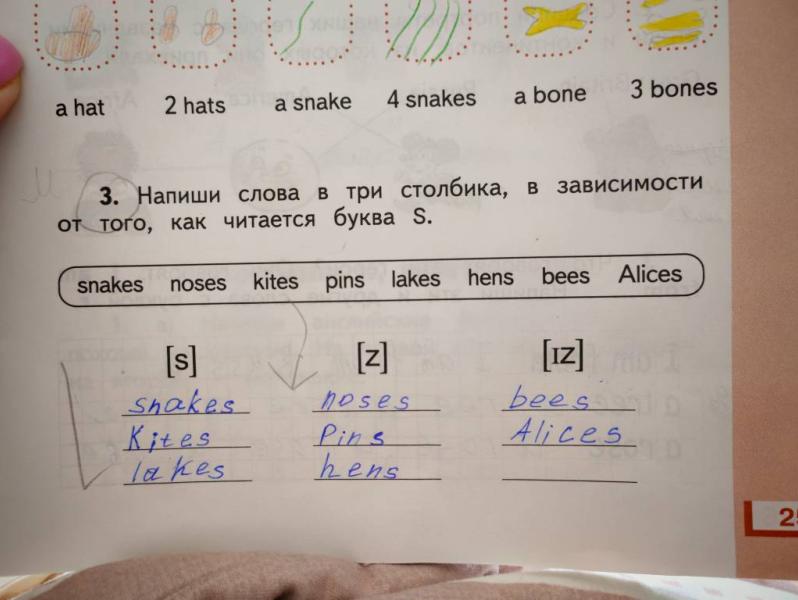 a hat 2 hats a snake 4 snakes a bone 3 bones
3. Напиши слова в три столбика, в зависимости
от того, как читается буква S.
snakes noses kites pins lakes hens bees Alices
[s] [z] [ɪz]
snakes noses bees
Kites Pins Alices
lakes hens
25